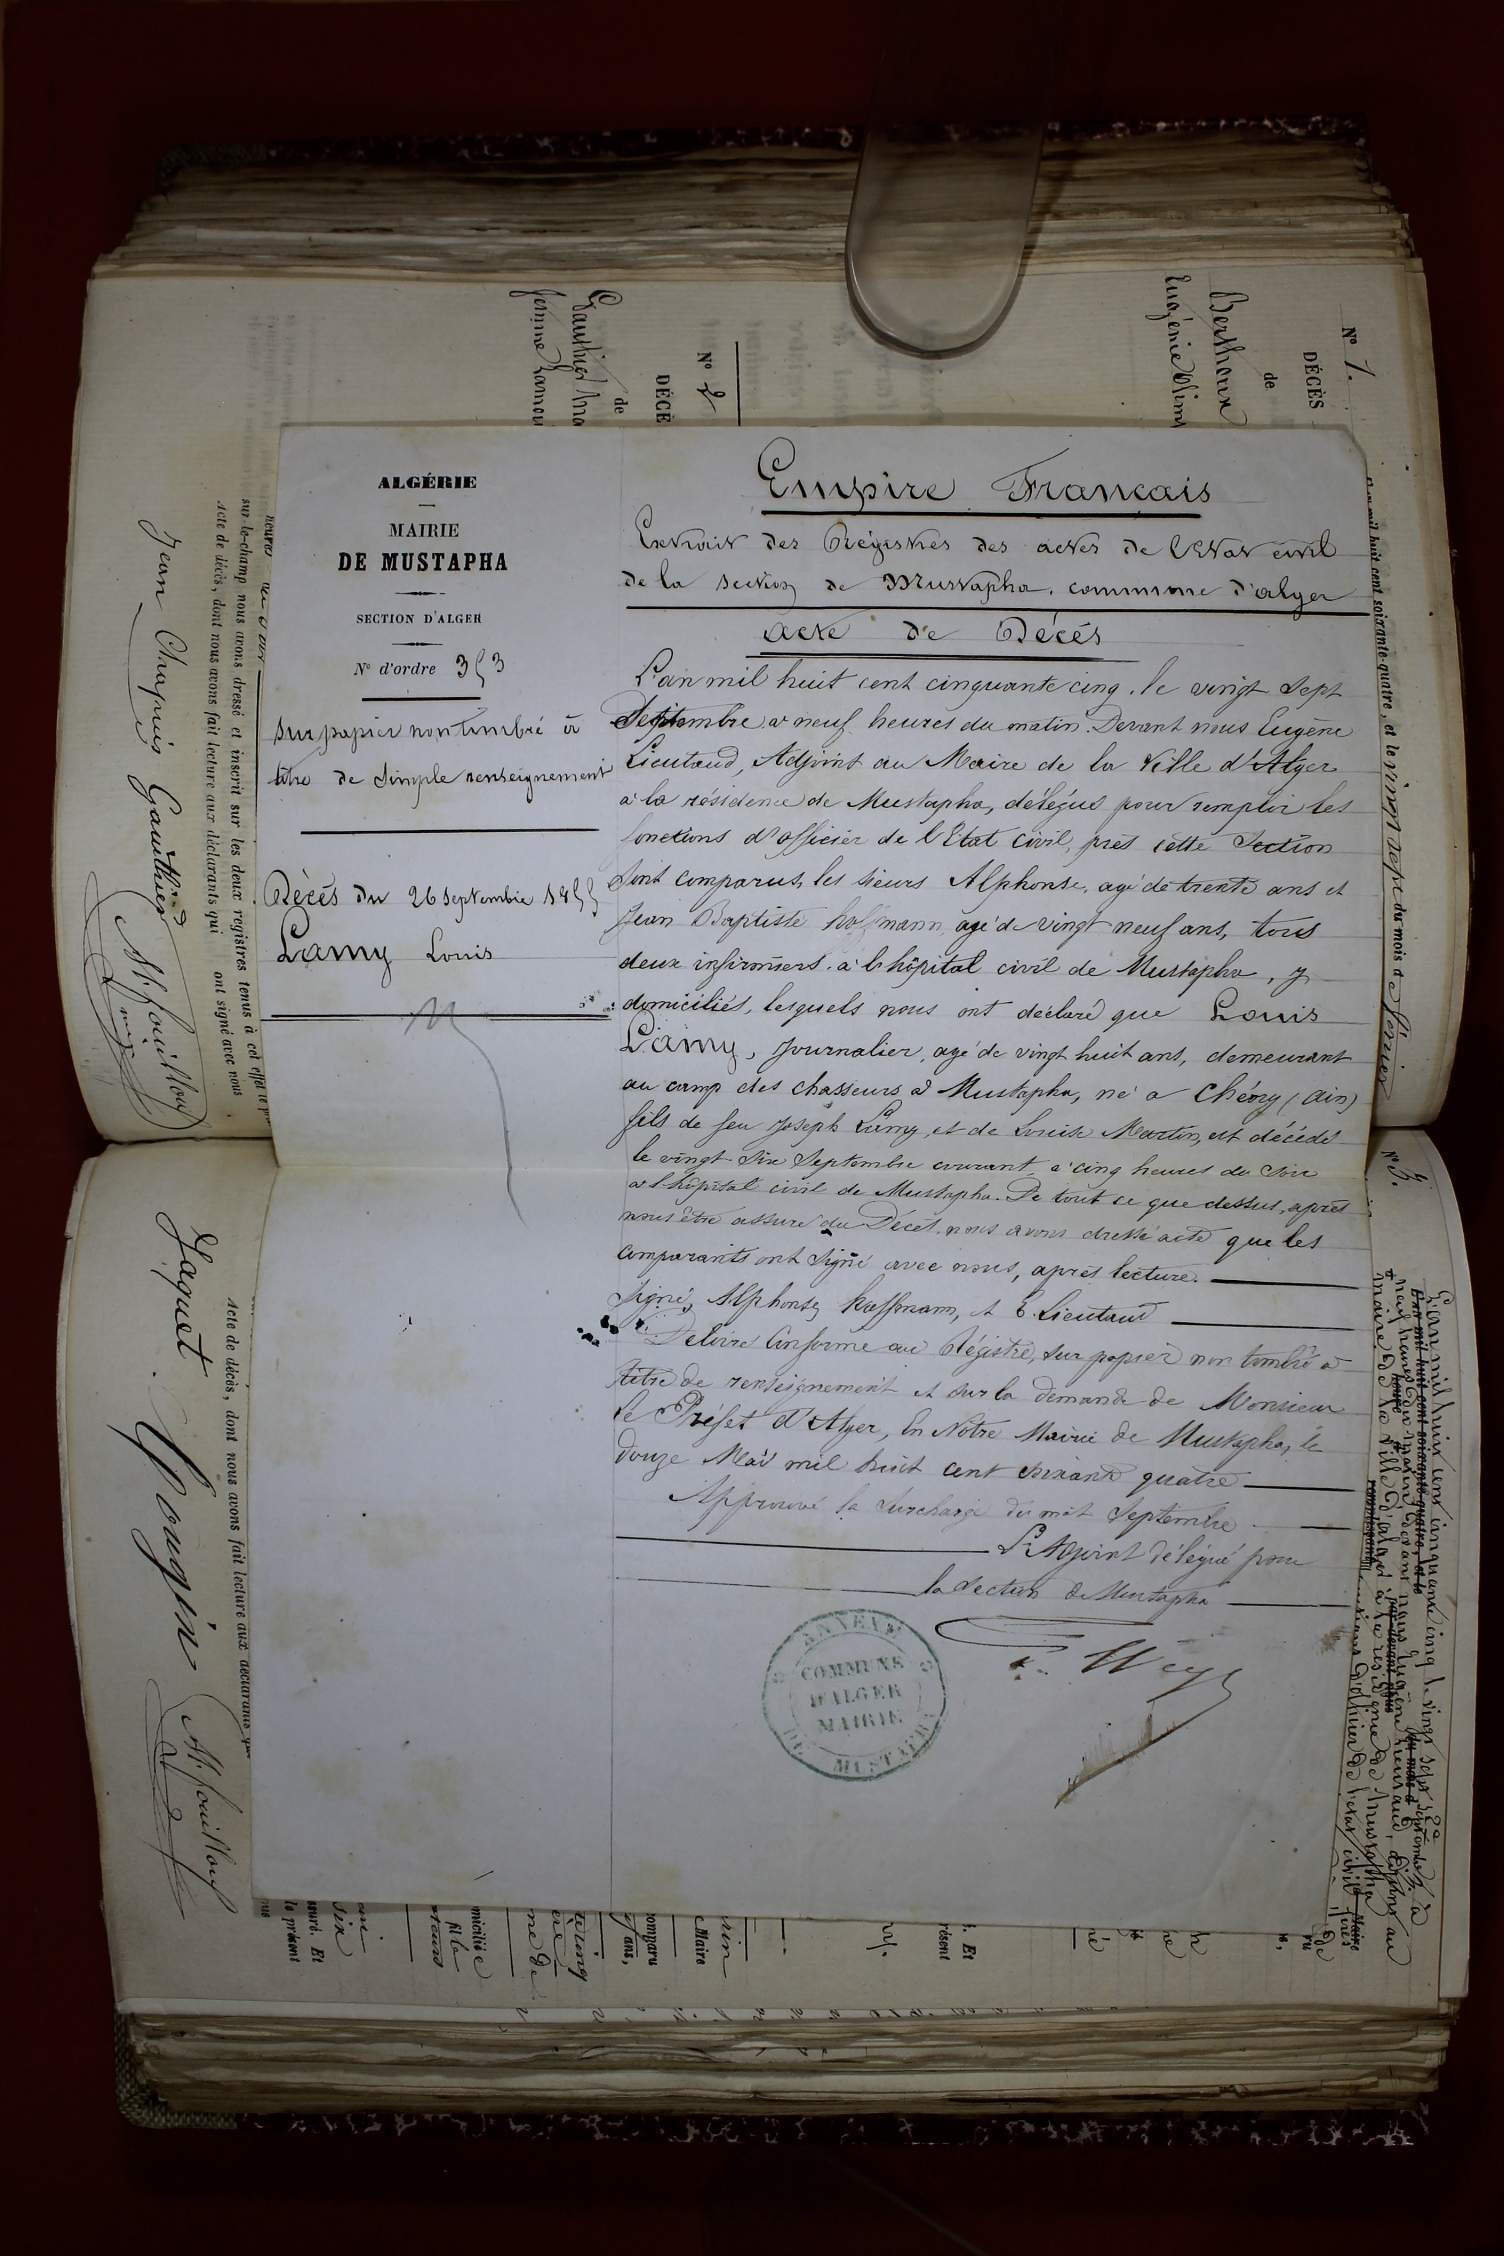 N° 1.
DÉCÈS
de
Bertheux
Eugénie
N° 2
DÉCÈ
de
Gauthier
femme
ALGÉRIE
MAIRIE
DE MUSTAPHA
SECTION D'ALGER
N° d'ordre 353
sur papier non timbré à
titre de simple renseignement
Décès du 26 septembre 1855
Lamy Louis
Empire Français
Extrait des Régistres des actes de l'Etat civil
de la section de Mustapha, commune d'alger
acte de Décès
L'an mil huit cent cinquante cinq, le vingt sept
Septembre à neuf heures du matin. Devant nous Eugène
Lieutaud, Adjoint au Maire de la Ville d'Alger
à la résidence de Mustapha, délégué pour remplir les
fonctions d'officier de l'Etat civil, près cette Section
sont comparus, les sieurs Alphonse, agé de trente ans et
Jean Baptiste hoffmann, agé de vingt neuf ans, tous
deux infirmiers à l'hôpital civil de Mustapha, y
domiciliés, lesquels nous ont déclaré que Louis
Lamy, journalier, agé de vingt huit ans, demeurant
au camp des chasseurs à Mustapha, né a Chévry (ain)
fils de feu Joseph Lamy, et de Louise Martin, est décédé
le vingt six Septembre courant, à cinq heures du soir
à l'hôpital civil de Mustapha. De tout ce que dessus, après
nous être assuré du Décès, nous avons dressé acte que les
comparants ont signé avec nous, après lecture.
Signé, Alphonse, hoffmann, et E. Lieutaud
Délivré Conforme au Régistre, sur papier non timbré à
titre de renseignement et sur la demande de Monsieur
le Préfet d'Alger, En Notre Mairie de Mustapha, le
douze Mai mil huit cent soixante quatre
Approuvé la surcharge du mot Septembre
L'Adjoint délégué pour
la Section de Mustapha
ANNEXE
COMMUNE
D'ALGER
MAIRIE
DE MUSTAPHA
mil huit cent soixante-quatre, et le vingt sept du mois de février
sur-le-champ nous avons dressé et inscrit sur les deux registres tenus à cet effet le
acte de décès, dont nous avons fait lecture aux déclarants qui ont signé avec nous
Jean Chapuis Gauthier
N° 3.
L'an mil huit cent cinquante cinq le vingt sept septembre à
neuf heures du matin devant nous Eugène Lieutaud, adjoint au
maire de la ville d'alger à la résidence de Mustapha
fonctions d'officier de l'état civil
acte de décès, dont nous avons fait lecture aux déclarants qui
Jaquet Gougin